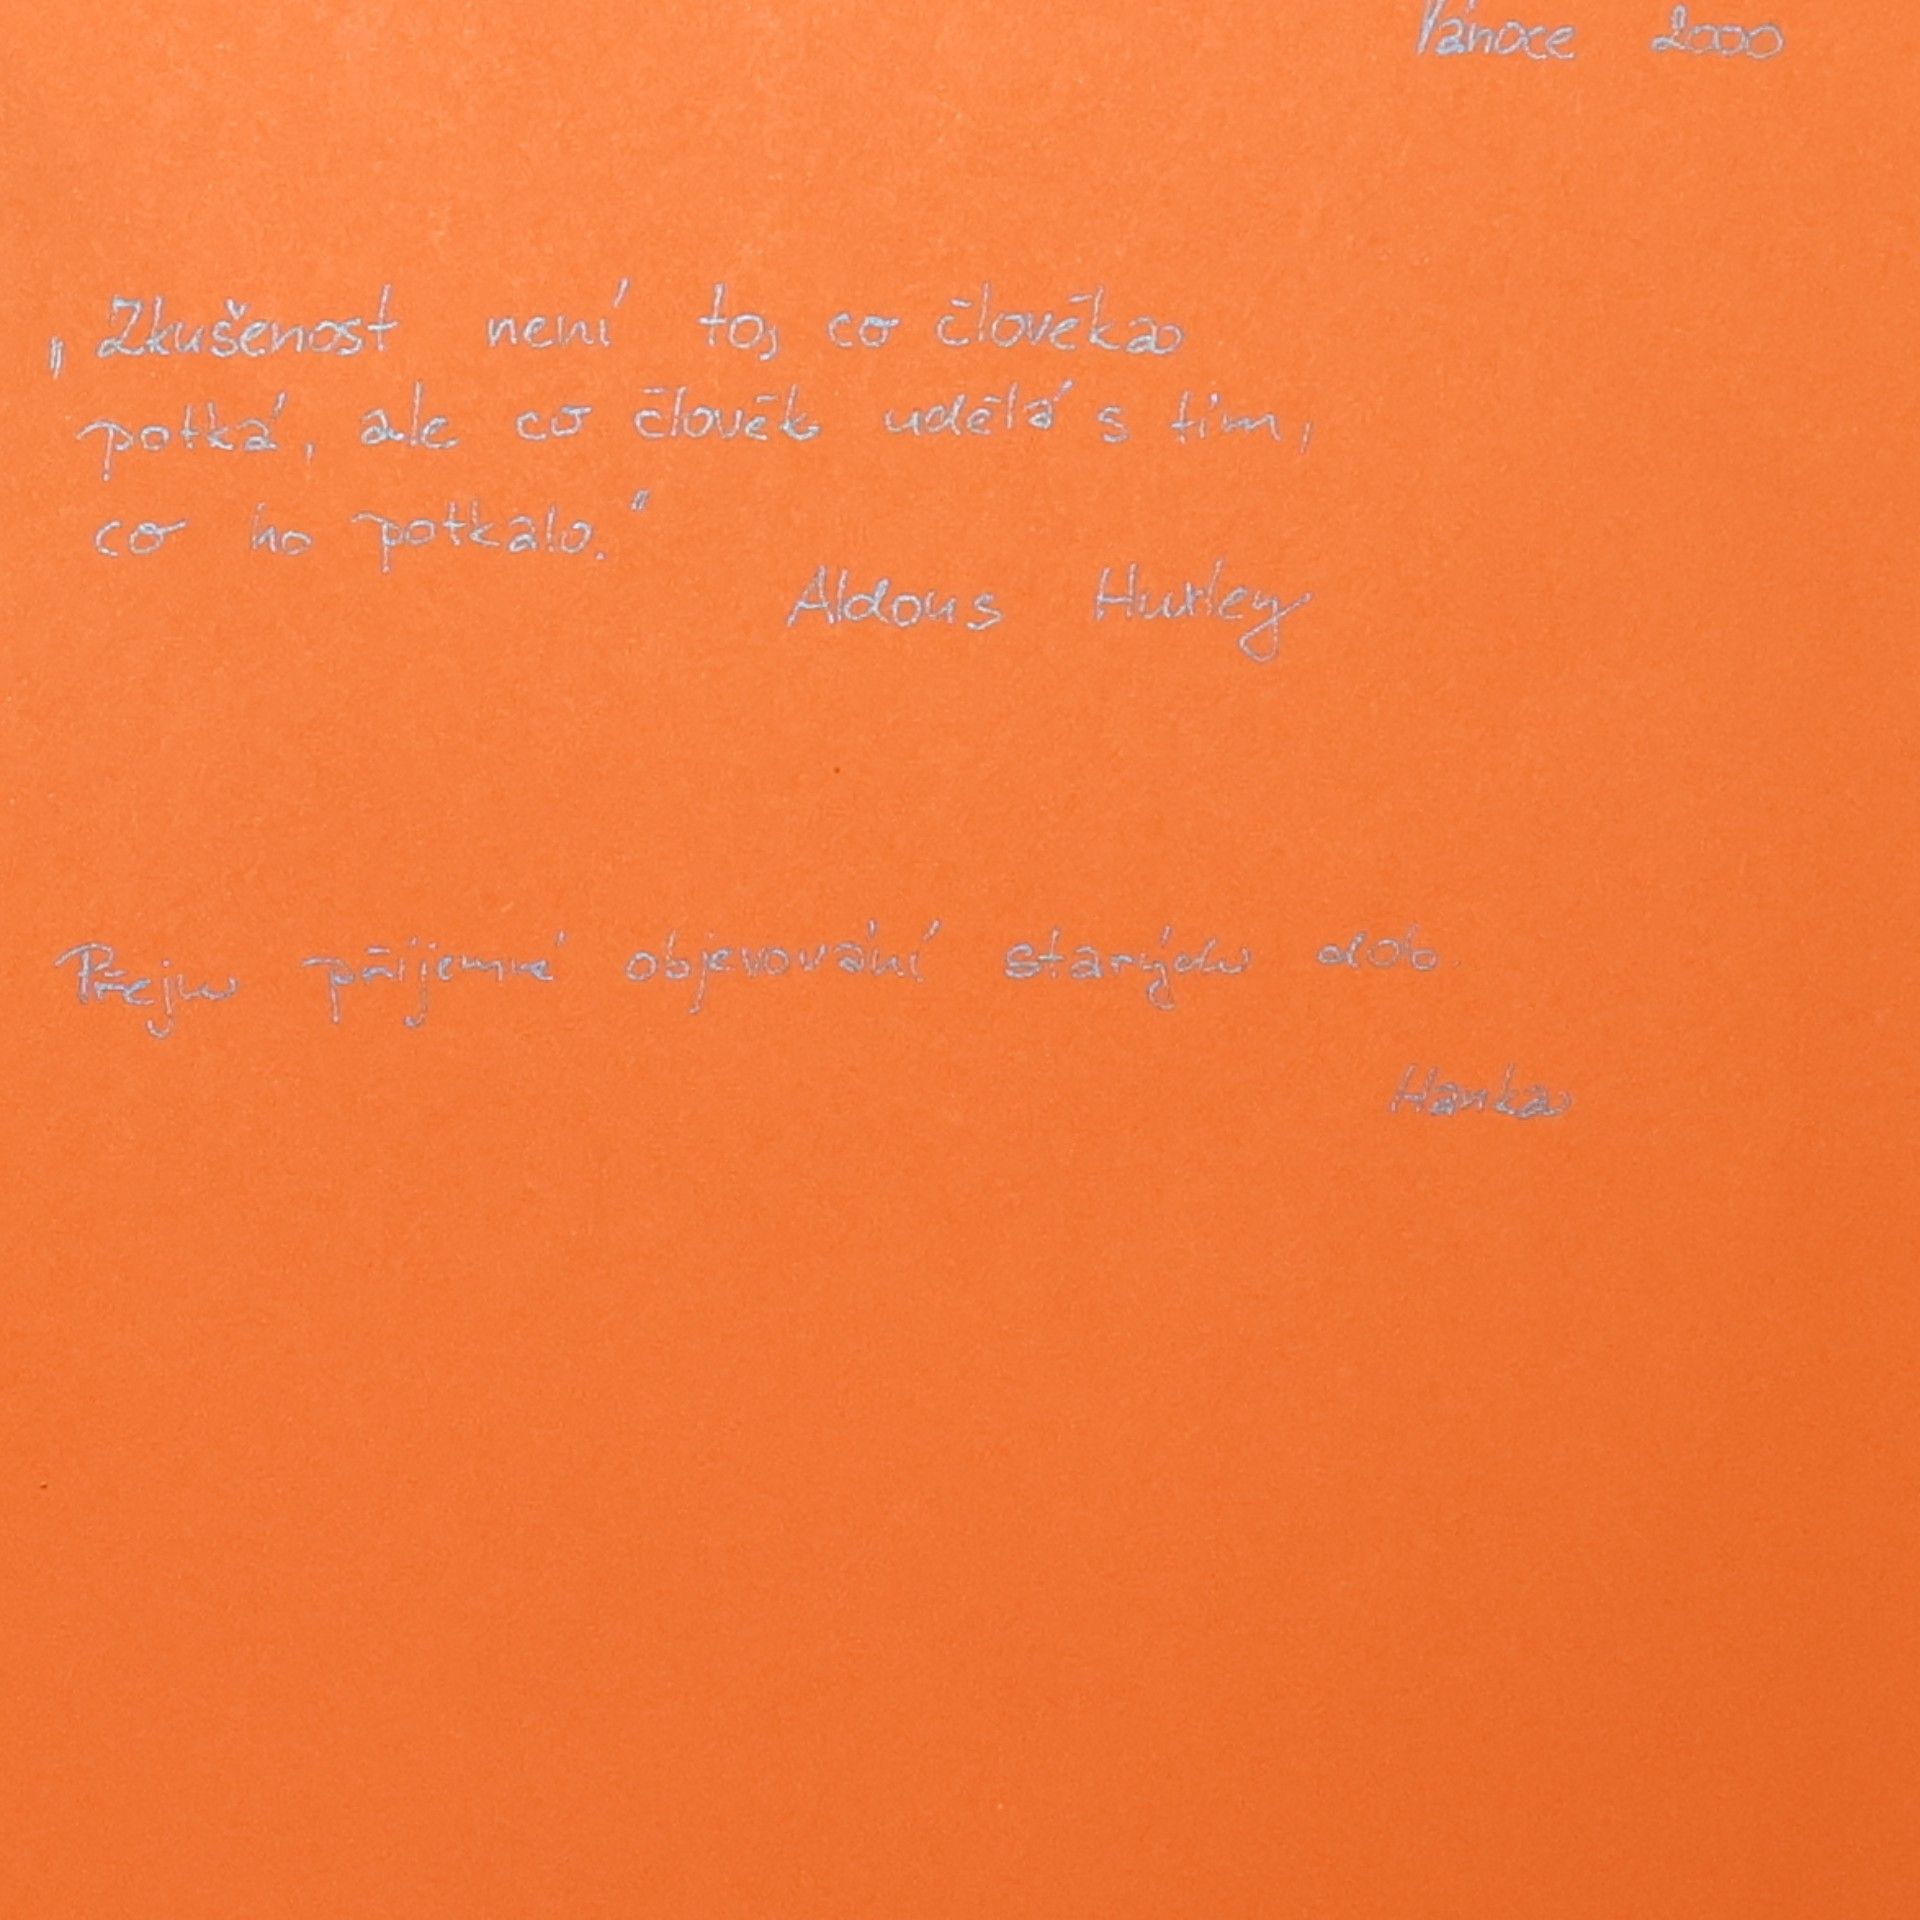 Vánoce 2000
„Zkušenost není to, co člověka
potká, ale co člověk udělá s tím,
co ho potkalo."
Aldous Huxley
Přeju příjemné objevování starých dob.
Hanka